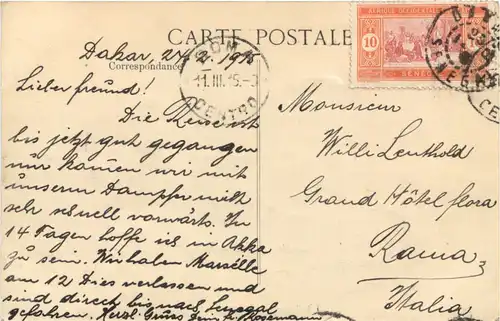 CARTE POSTALE
Correspondance
Dakar, 24/2. 1915
Lieber freund!
Die Reise ist
bis jetzt gut gegangen
nur kamen wir mit
unserm Dampfer nicht
sehr schnell vorwärts. In
14 Tagen hoffe ich in Akka
zu sein. Wir haben Marseille
am 12 Dies verlassen und
sind direct bis nach Senegal
gefahren. Herzl. Gruss dein
ROM
11.III.15.
CENTRO
AFRIQUE OCCIDENTALE
10
10
SENEGAL
Monsieur
Willi Leuthold
Grand Hôtel flora
Roma
Italia